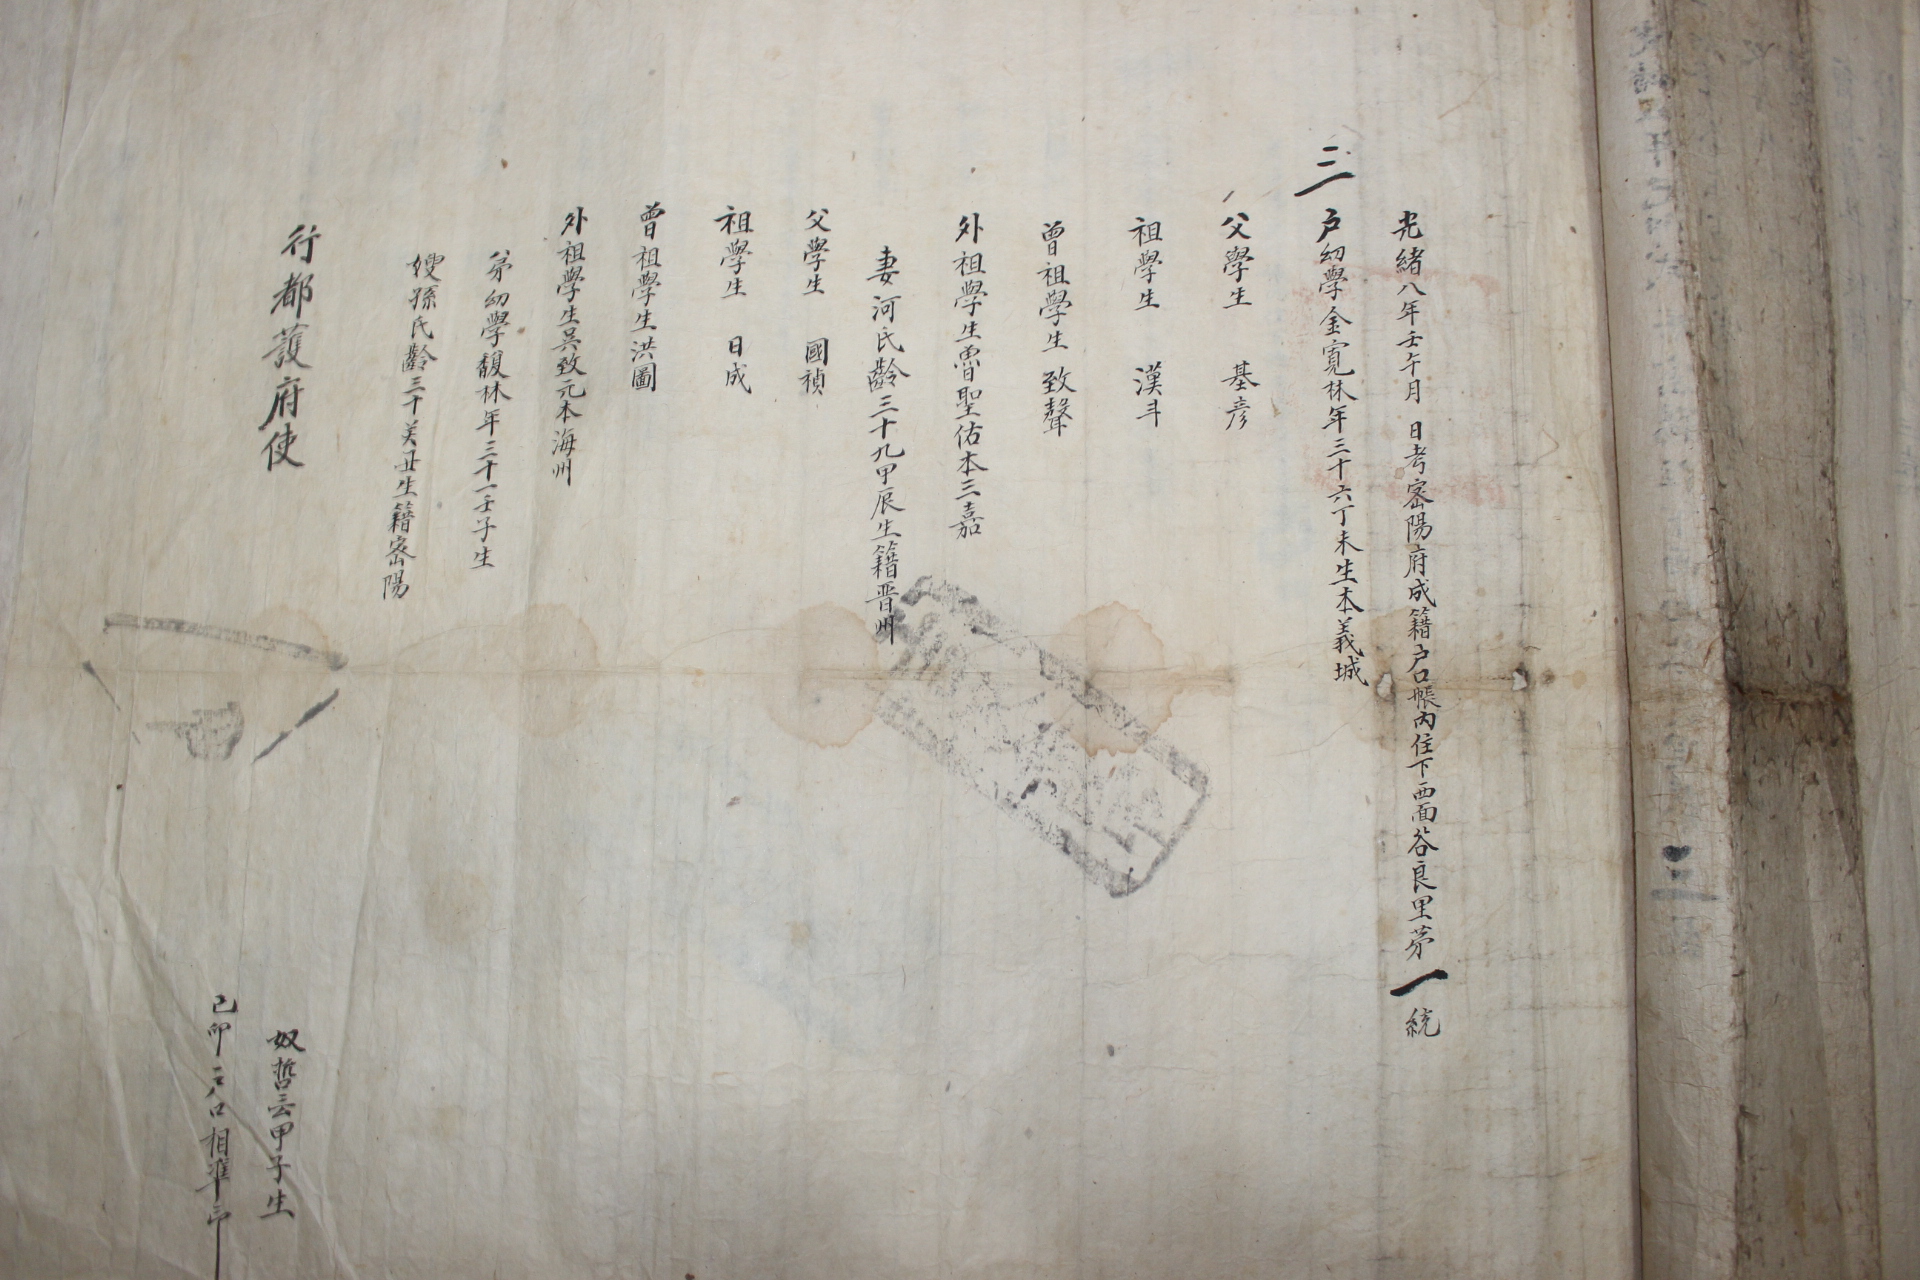 光緖八年壬午月 日考密陽府成籍戶口帳內住下西面谷良里第一統
三戶幼學金寬林年三十六丁未生本義城
父學生 基彦
祖學生 漢斗
曾祖學生 致聲
外祖學生魯聖佑本三嘉
妻河氏齡三十九甲辰生籍晋州
父學生 國禎
祖學生 日成
曾祖學生洪圖
外祖學生吳致元本海州
弟幼學馥林年三十一壬子生
嫂孫氏齡三十癸丑生籍密陽
行都護府使
奴哲云甲子生
己卯戶口相準印